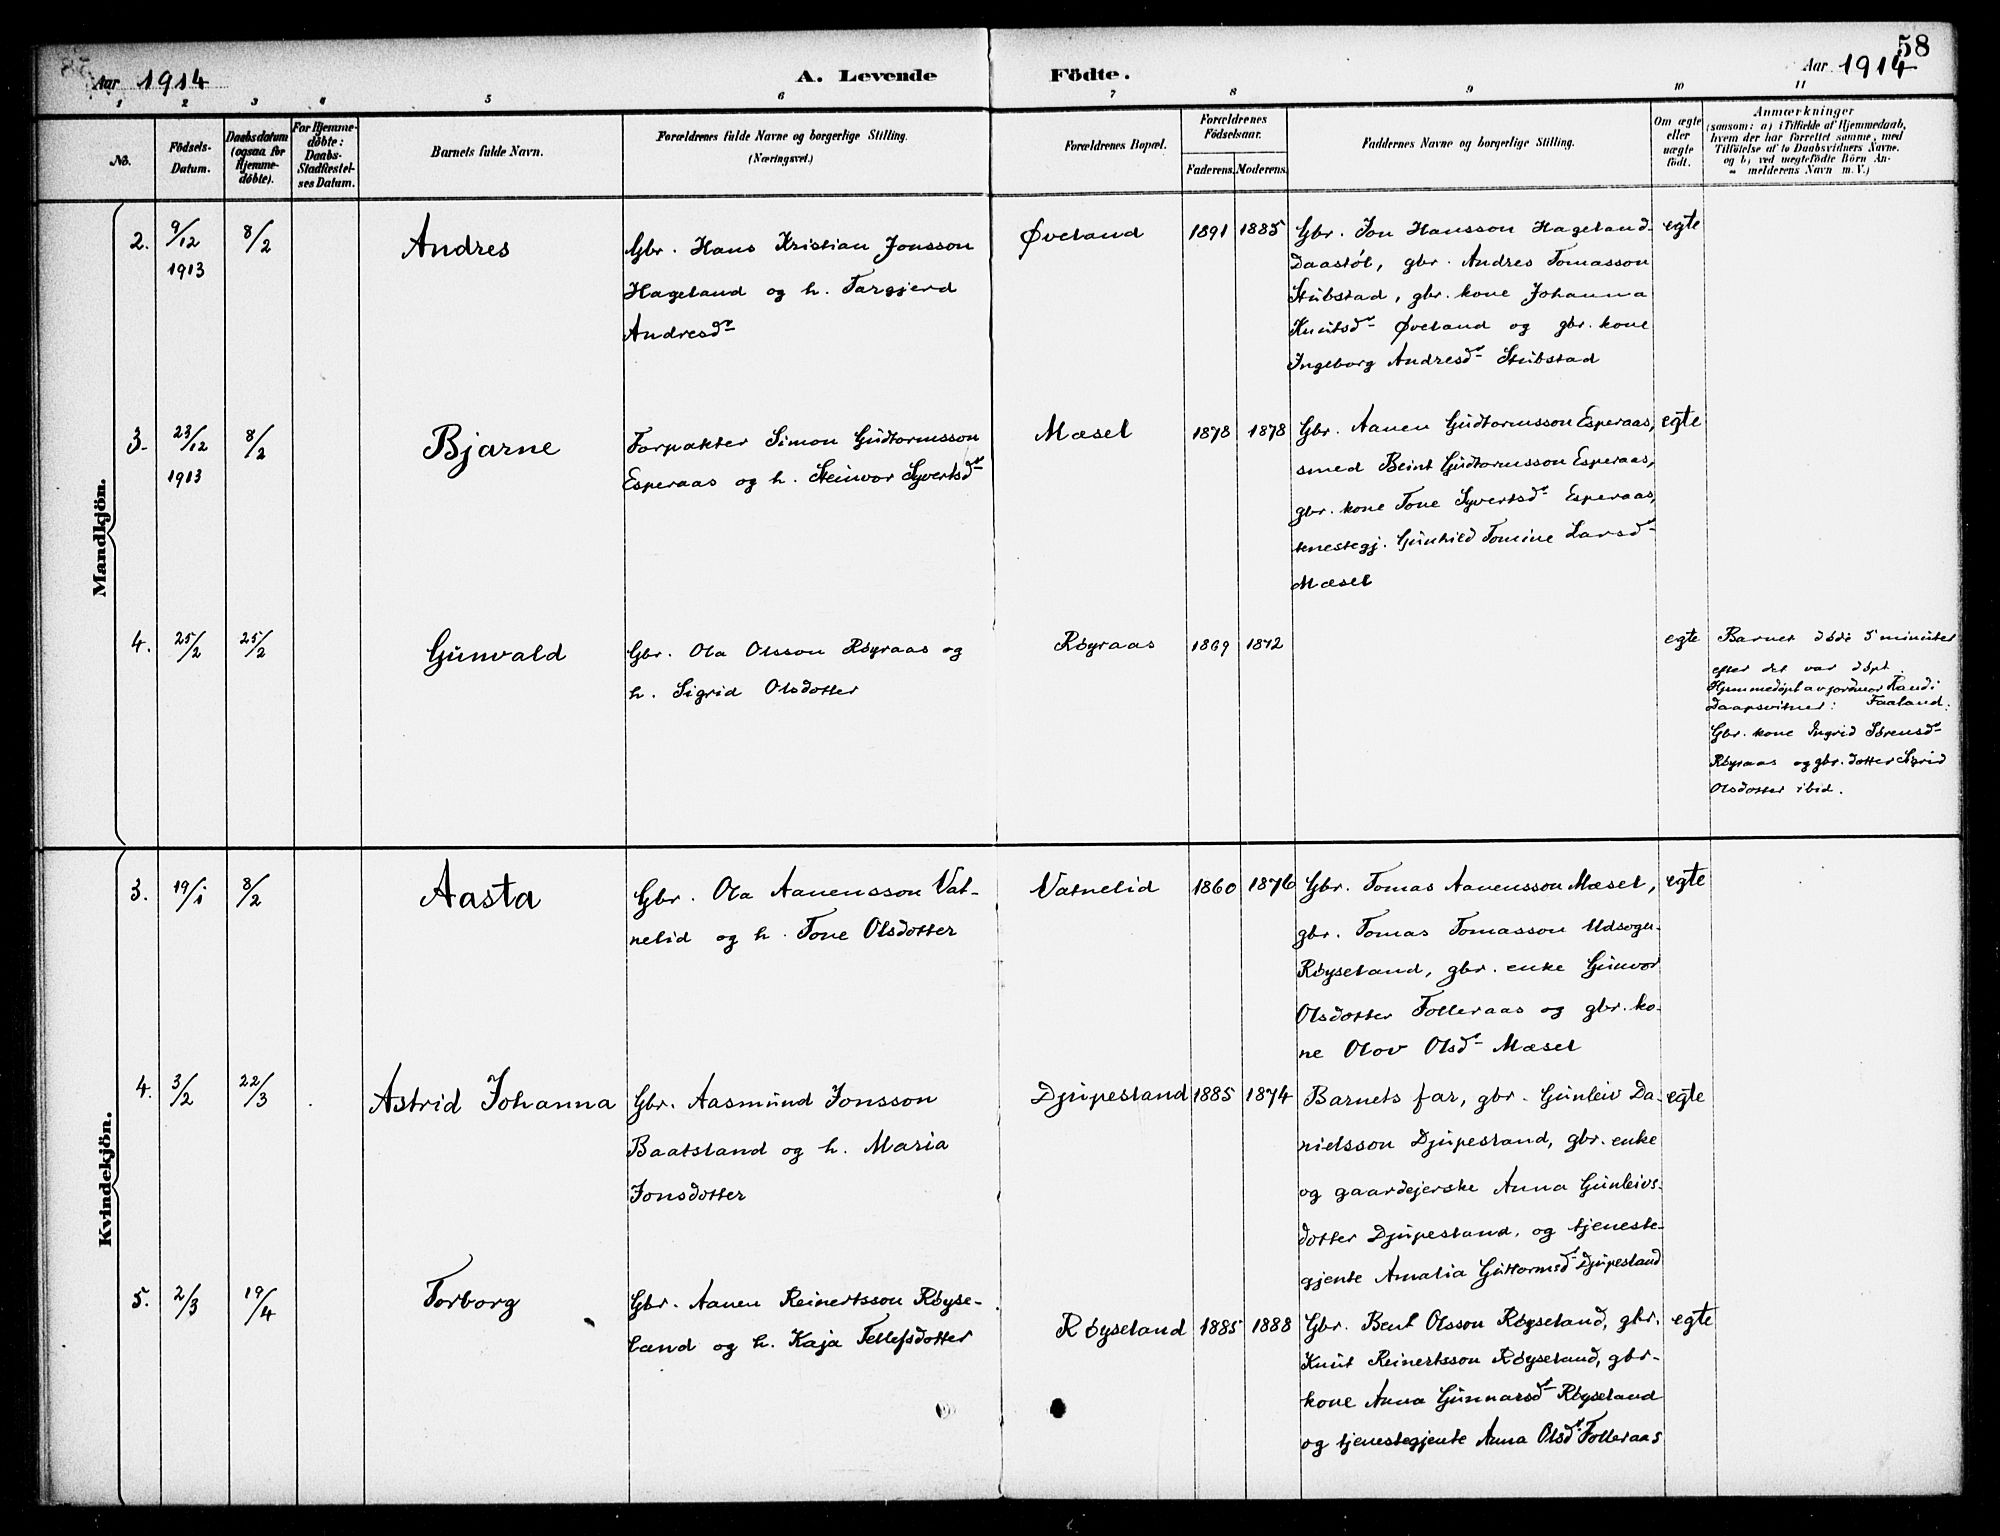 58
Aar 1914 A. Levende Födte. Aar 1914
1 2 3 4 5 6 7 8 9 10 11
No.
Födsels-
Datum.
Daabsdatum
(ogsaa for
Hjemme-
døbte).
For Hjemme-
døbte:
Daabs-
Stadfæstel-
ses Datum.
Barnets fulde Navn.
Forældrenes fulde Navne og borgerlige Stilling.
(Næringsvei.)
Forældrenes Bopæl.
Forældrenes
Födselsaar.
Faderens. Moderens.
Faddernes Navne og borgerlige Stilling.
Om ægte
eller
uægte
født.
Anmærkninger
(saasom: a) i Tilfælde af Hjemmedaab,
hvem der har forrettet samme, med
Tilföielse af to Daabsvidners Navne.
og b) ved uægtefödte Börn An-
melderens Navn m. V.)
Mandkjön.
2. 9/12 1913
8/2
Andres
Gbr. Hans Kristian Jonsson
Hageland og h. Targjerd
Andresdr
Øveland
1891 1885
Gbr. Jon Hansson Hageland-
Daastøl, gbr. Andres Tomasson
Stubstad, gbr. kone Johanna
Knutsdr Øveland og gbr. kone
Ingeborg Andresdr Stubstad
egte
3. 23/12 1913
8/2
Bjarne
Forpakter Simon Gudtormsson
Esperaas og h. Steinvor Syvertsdr
Mæsel
1878 1878
Gbr. Aanen Gudtormsson Esperaas,
smed Beint Gudtormsson Esperaas,
gbr. kone Tone Syvertsdr Esperaas,
tenestegj. Gunhild Tomine Larsdr
Mæsel
egte
4. 25/2
25/2
Gunvald
Gbr. Ola Olsson Røyraas og
h. Sigrid Olsdotter
Røyraas
1869 1872
egte
Barnet døde 5 minutter
efter det var døpt.
Hjemmedøpt av jordmor Kandi
Daapsvitner: Faaland:
Gbr. kone Ingrid Sørensdr
Røyraas og gbr. dotter Sigrid
Olsdotter ibid.
Kvindekjön.
3. 19/1
8/2
Aasta
Gbr. Ola Aanensson Vat-
nelid og h. Tone Olsdotter
Vatnelid
1860 1876
Gbr. Tomas Aanensson Mæsel,
gbr. Tomas Tomasson Udsogn-
Røyseland, gbr. enke Gunvor
Olsdotter Folleraas og gbr. ko-
ne Olov Olsdr Mæsel
egte
4. 3/2
22/3
Astrid Johanna
Gbr. Aasmund Jonsson
Baatsland og h. Maria
Jonsdotter
Djupesland
1885 1874
Barnets far, gbr. Gunleiv Da-
nielsson Djupesland, gbr. enke
og gaardejerske Anna Gunleivs-
dotter Djupesland, og tjeneste-
gjente Amalia Guttormsdr Djupesland
egte
5. 2/3
19/4
Torborg
Gbr. Aanen Reinertsson Røyse-
land og h. Kaja Tellefsdotter
Røyseland
1885 1888
Gbr. Bent Olsson Røyseland, gbr.
Knut Reinertsson Røyseland, gbr-
kone Anna Gunnarsdr Røyseland
og tjenestegjente Anna Olsdr Folleraas
egte